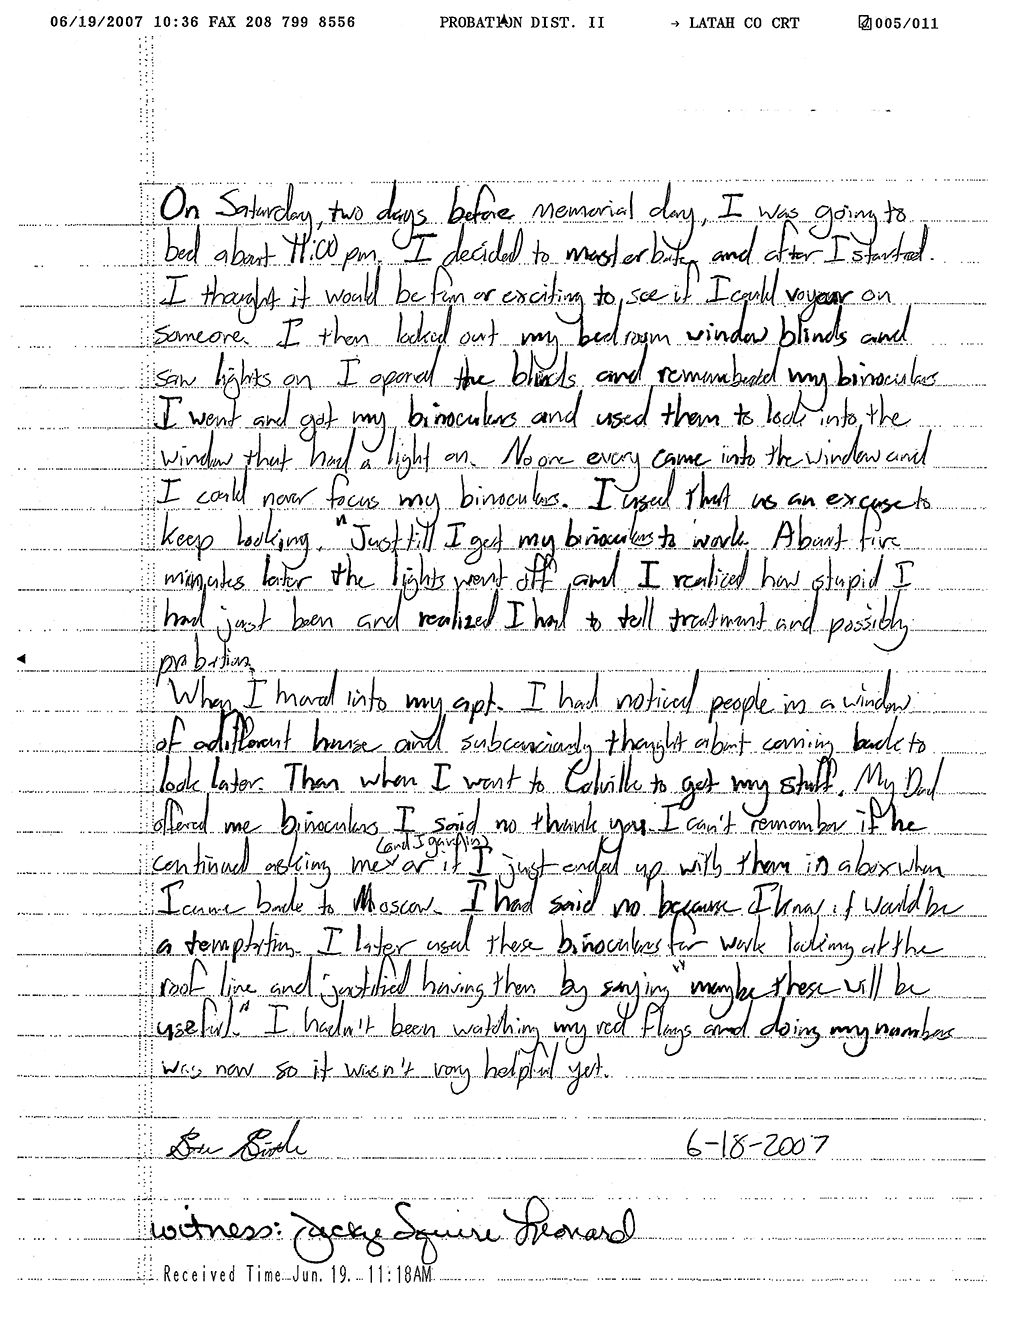 06/19/2007 10:36 FAX 208 799 8556 PROBATION DIST. II → LATAH CO CRT 005/011
On Saturday, two days before memorial day, I was going to
bed about 11:00 pm. I decided to masterbate and after I started.
I thought it would be fun or exciting to see if I could voyeur on
someone. I then looked out my bedroom window blinds and
saw lights on I opened the blinds and remembered my binoculars
I went and got my binoculars and used them to look into the
window that had a light on. No one every came into the window and
I could never focus my binoculars. I used that as an excuse to
keep looking, "Just till I get my binoculars to work. About five
minutes later the lights went off and I realized how stupid I
had just been and realized I had to tell treatment and possibly
probation.
When I moved into my apt. I had noticed people in a window
of a different house and thought about coming back to
look later. Then when I went to Colville to get my stuff. My Dad
offered me binoculars I said no thank you. I can't remember if he
(and I gave in)
continued asking me or if I just ended up with them in a box when
I came back to Moscow. I had said no because I knew it would be
a temptation. I later used these binoculars for work looking at the
roof line and justified having them by saying "maybe these will be
useful." I hadn't been watching my red flags and doing my numbers
was new so it wasn't very helpful yet.
6-18-2007
witness: Jacky Squire Leonard
Received Time Jun. 19. 11:18AM